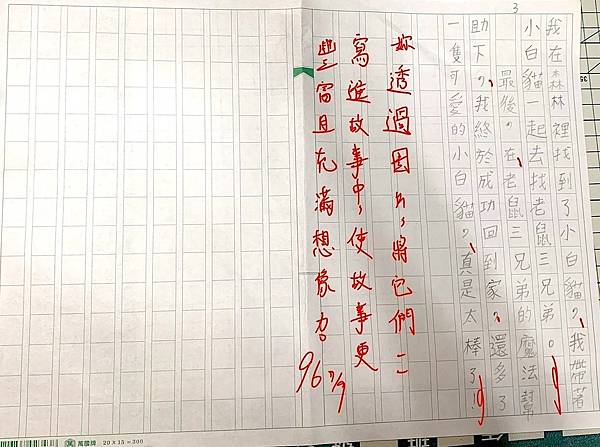 3
我在森林裡找到了小白貓,我帶著
小白貓一起去找老鼠三兄弟。
最後,在老鼠三兄弟的魔法幫
助下,我終於成功回到家,還多了
一隻可愛的小白貓,真是太棒了!
妳透過圖片,將它們
寫進故事中,使故事更
豐富且充滿想像力。
96 7/9
萬國牌 20×15=300